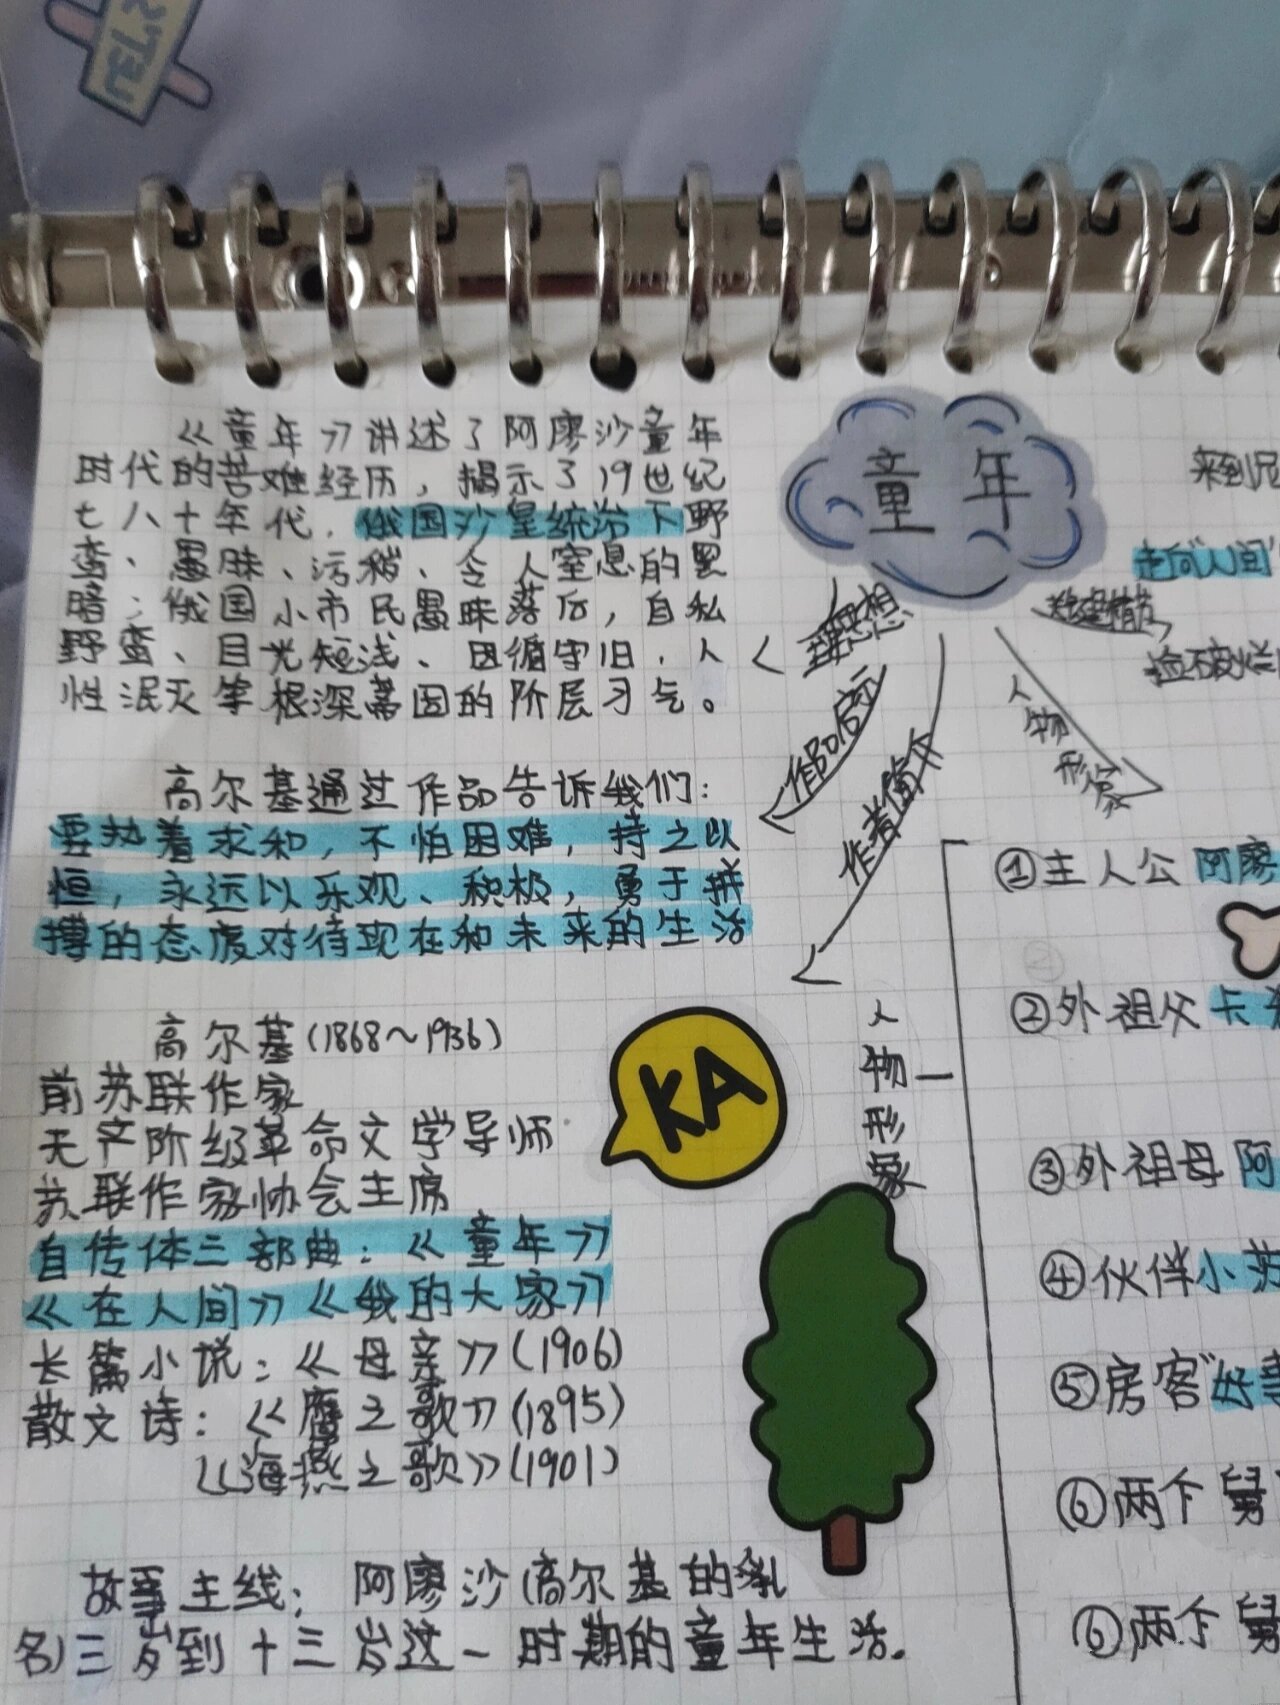 《童年》讲述了阿廖沙童年
时代的苦难经历，揭示了19世纪
七八十年代，俄国沙皇统治下野
蛮、愚昧、污秽、令人窒息的黑
暗；俄国小市民愚昧落后，自私
野蛮、目光短浅、因循守旧，人
性泯灭等根深蒂固的阶层习气。
高尔基通过作品告诉我们：
要执着求和，不怕困难，持之以
恒，永远以乐观、积极，勇于拼
搏的态度对待现在和未来的生活
高尔基(1868～1936)
前苏联作家
无产阶级革命文学导师
苏联作家协会主席
自传体三部曲：《童年》
《在人间》《我的大家》
长篇小说：《母亲》(1906)
散文诗：《鹰之歌》(1895)
《海燕之歌》(1901)
故事主线：阿廖沙(高尔基的乳
名)三岁到十三岁这一时期的童年生活.
童年
思想
作品启示
作者简介
人物形象
情节
来到
走向"人间"
捡破烂
KA
人物形象
①主人公阿廖
②外祖父卡
③外祖母阿
④伙伴小苏
⑤房客"好
⑥两个舅
⑥两个舅